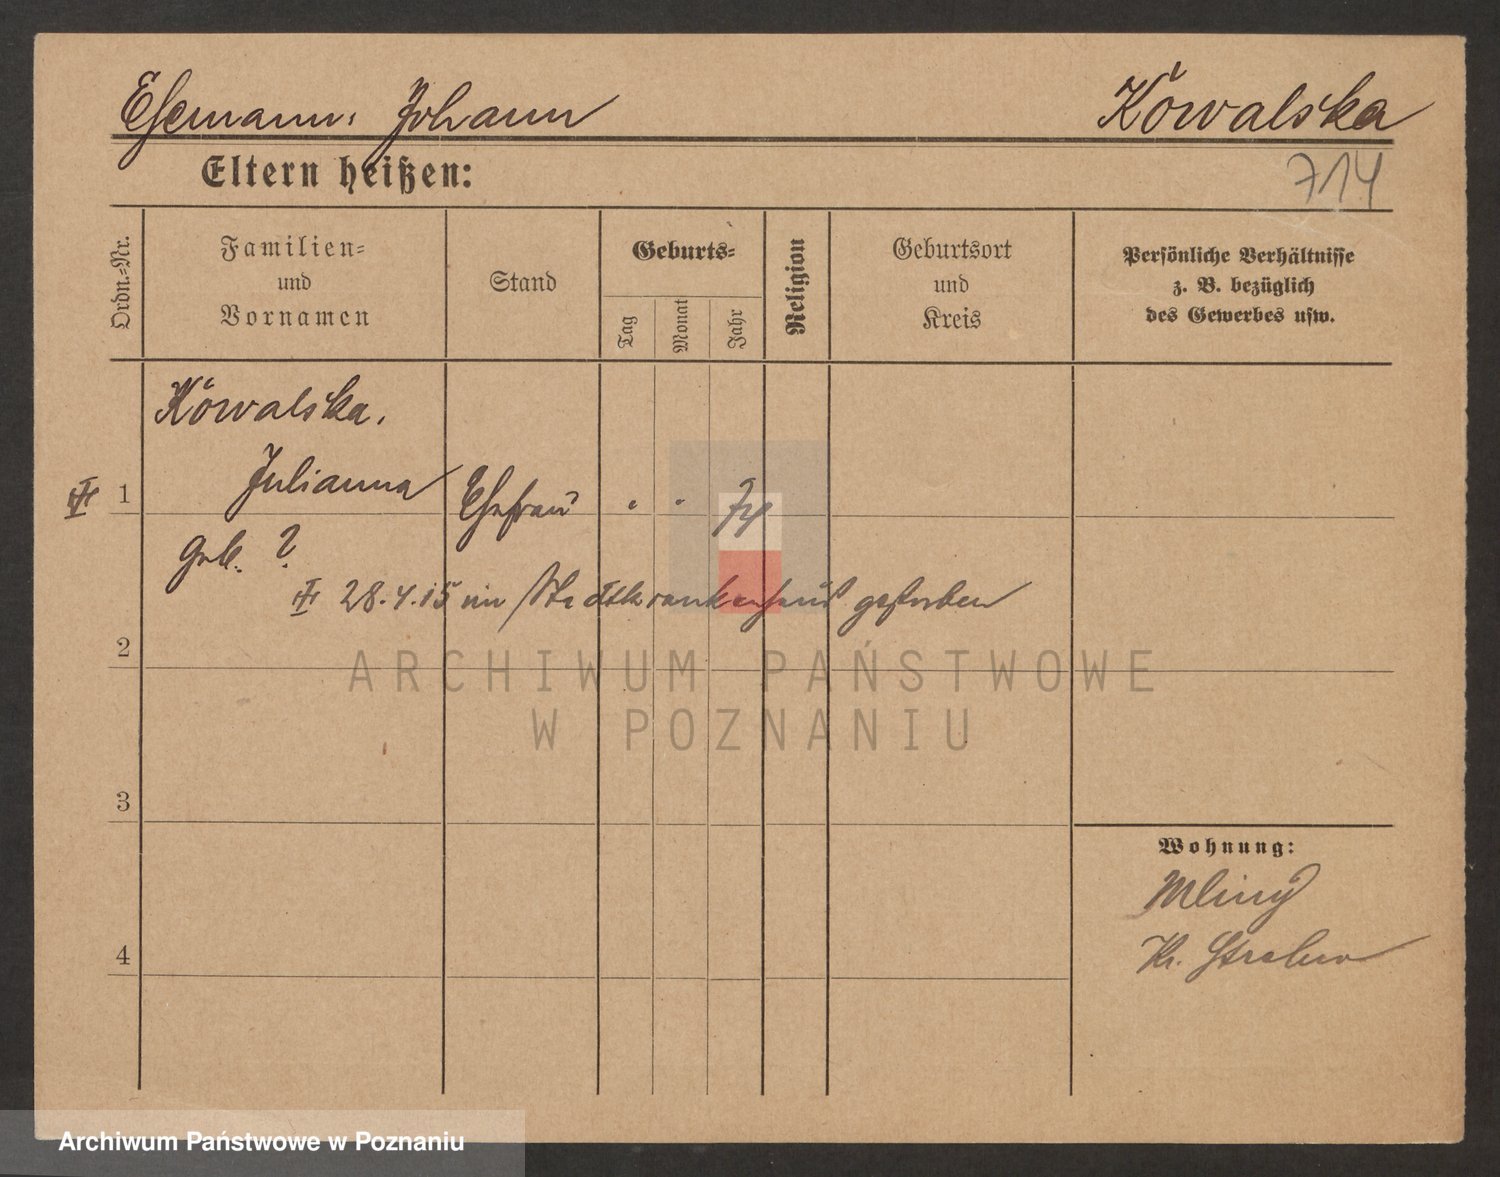 Ehemann: Johann Kowalska
Eltern heißen: 714
Ordn.-Nr.
Familien-
und
Vornamen
Stand
Geburts-
Tag
Monat
Jahr
Religion
Geburtsort
und
Kreis
Persönliche Verhältnisse
z. B. bezüglich
des Gewerbes usw.
Kowalska,
1 Julianna Ehefrau 74
geb. ?
28.4.15 im Stadtkrankenhaus gestorben
2
ARCHIWUM PAŃSTWOWE
W POZNANIU
3
Wohnung:
Mliny
Kr. Strelno
4
Archiwum Państwowe w Poznaniu